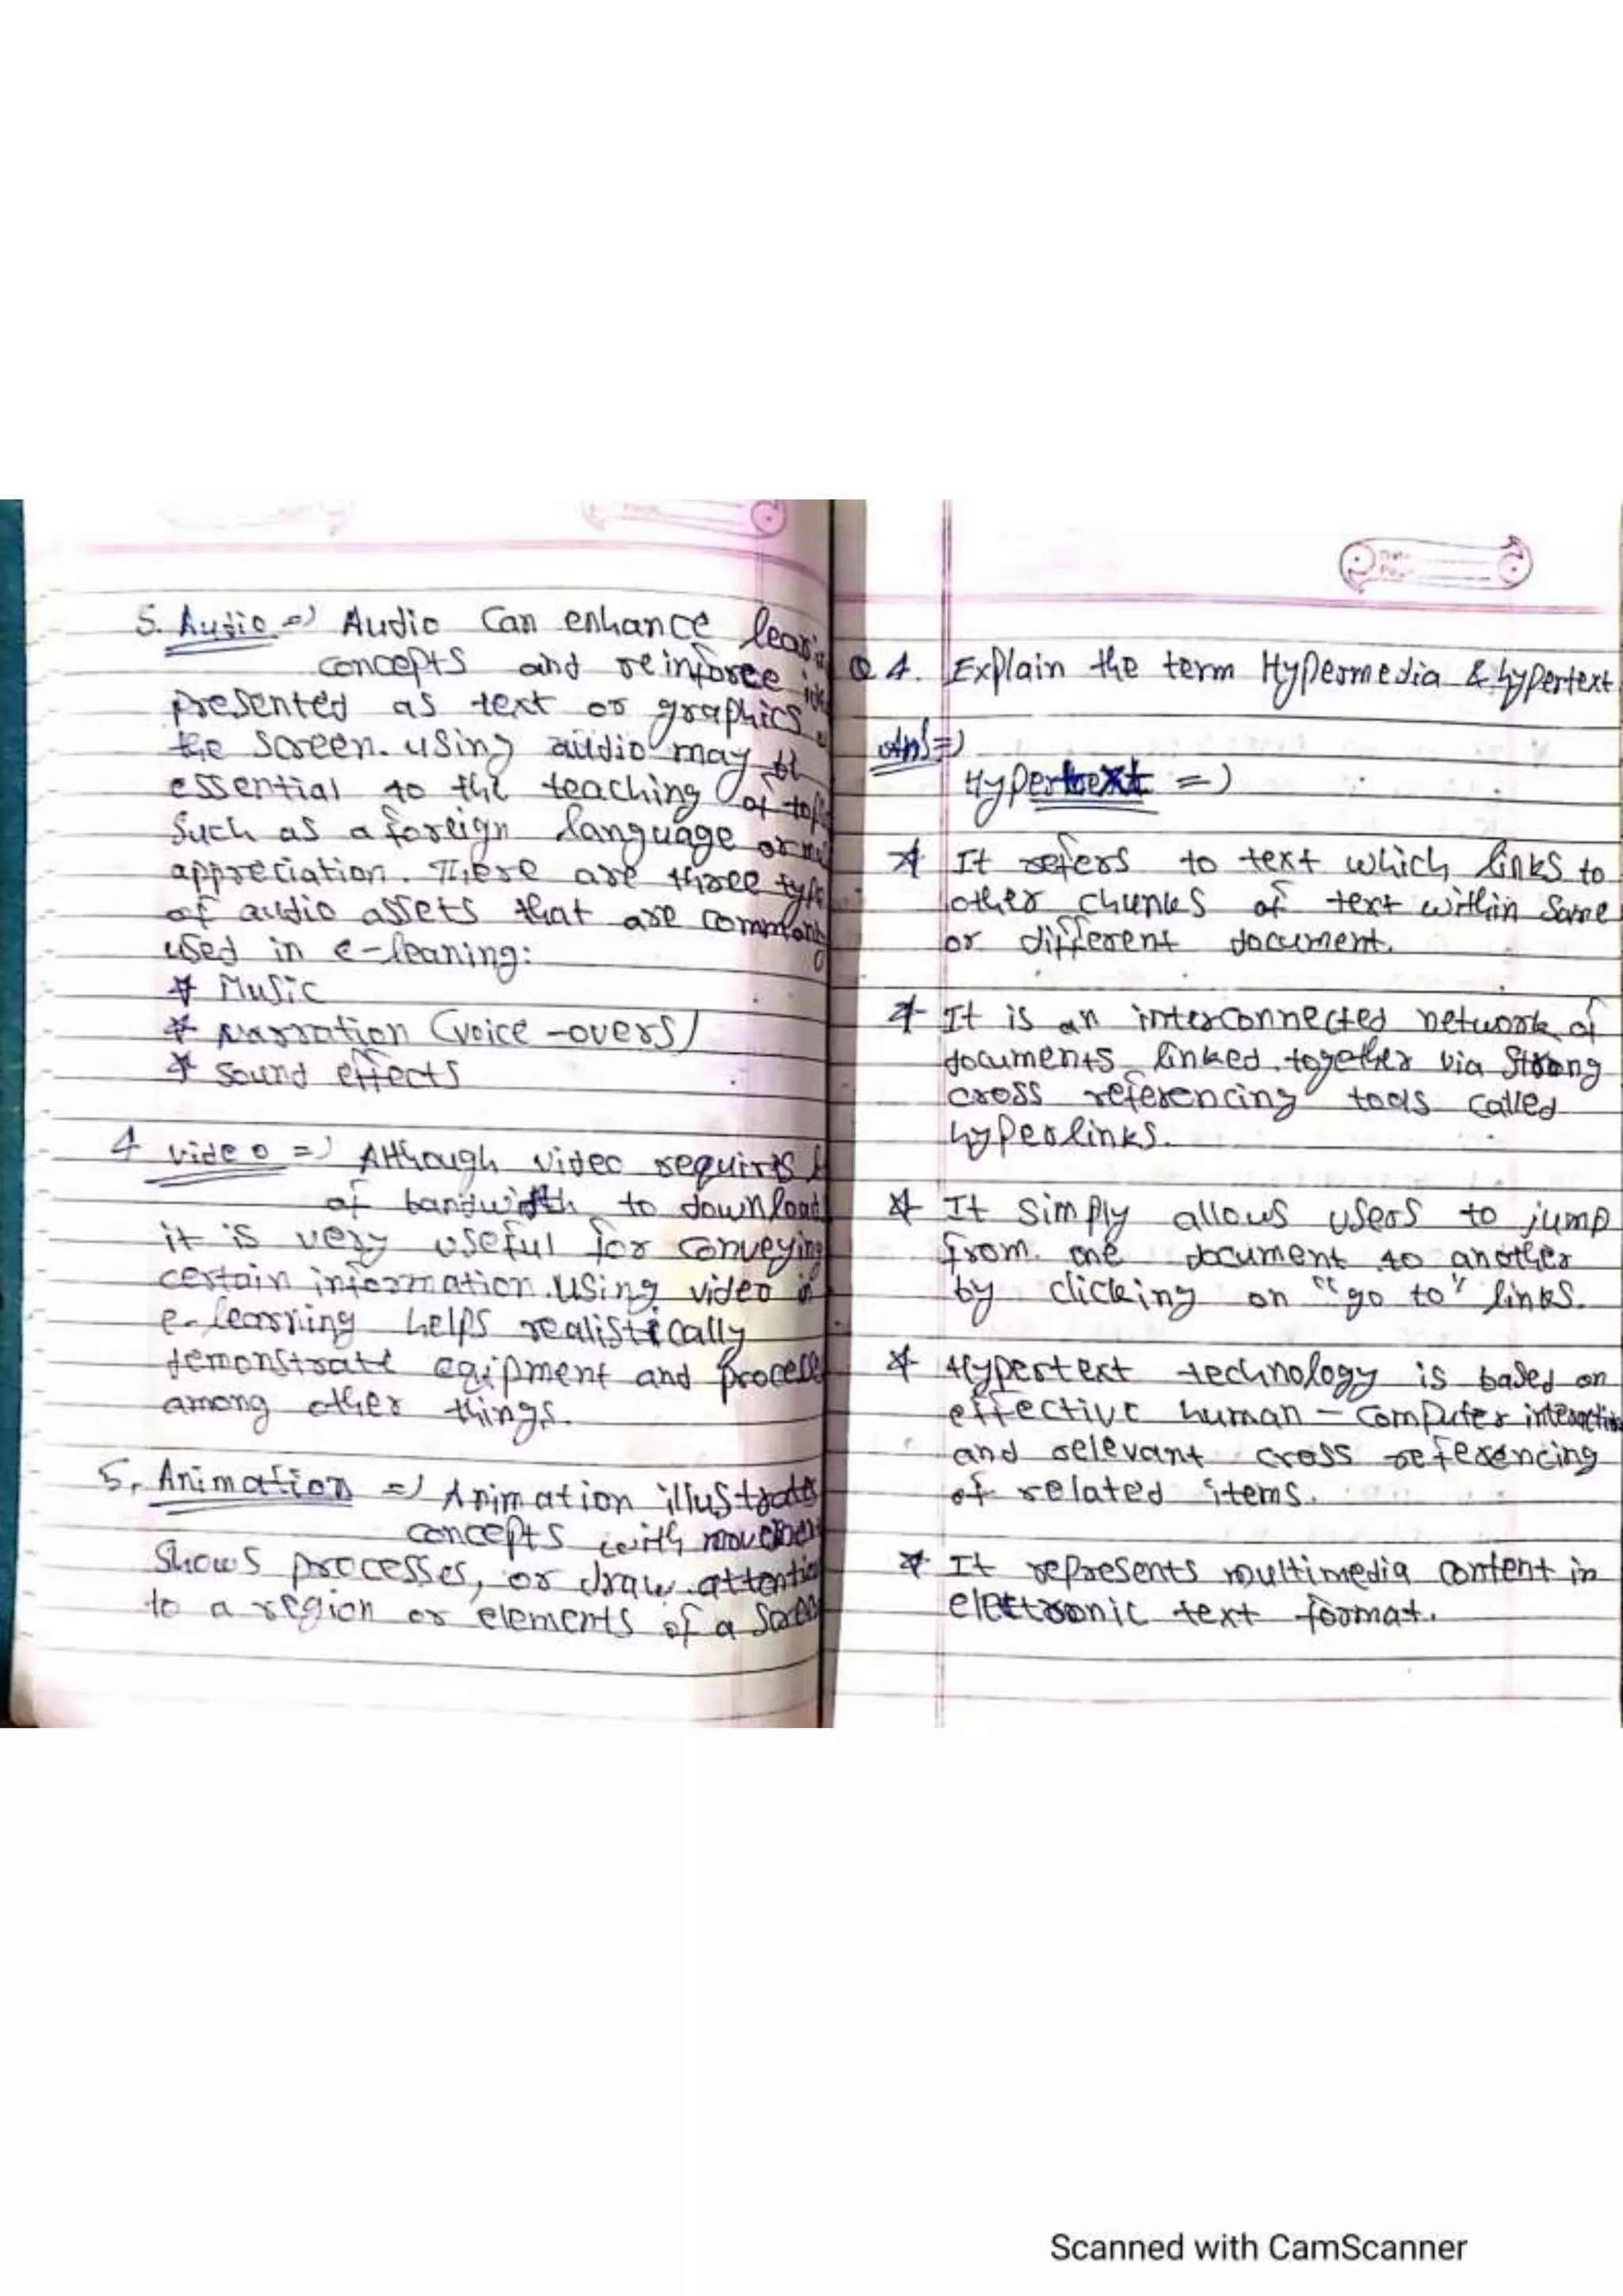 5. Audio => Audio Can enhance
concepts and reinforce
presented as text or graphics
the screen. using audio may
essential to the teaching of
Such as a foreign language or
appreciation. There are three
of audio assets that are commonly
used in e-leaning:
* Music
* Narration (voice-overs)
* Sound effects
4 video => Although video requires
of bandwidth to download
it is very useful for conveying
certain information. Using video
e-learning helps realistically
demonstrate eqipment and
among other things.
5, Animation => Animation illustrates
concepts with
Shows processes, or draw attention
to a region or elements of a
Date
Page
Q 4. Explain the term Hypermedia & hypertext
Ans =>
Hypertext =>
* It refers to text which links to
other chunks of text within Same
or different document.
* It is an interconnected network of
documents linked together via Strong
cross referencing tools called
hyperlinks.
* It Simply allows users to jump
from one document to another
by clicking on "go to" links.
* Hypertext technology is based on
effective human - computer interaction
and relevant cross referencing
of related items.
* It represents multimedia content in
electronic text format.
Scanned with CamScanner